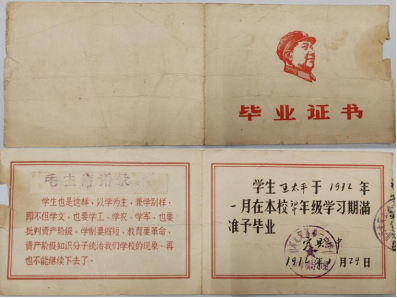 毕业证书
毛主席语录
学生也是这样，以学为主，兼学别样，
即不但学文，也要学工、学农、学军，也要
批判资产阶级。学制要缩短，教育要革命，
资产阶级知识分子统治我们学校的现象，再
也不能继续下去了。
学生王太平于1972年
一月在本校 年级学习期满
准予毕业
197 年1月29日